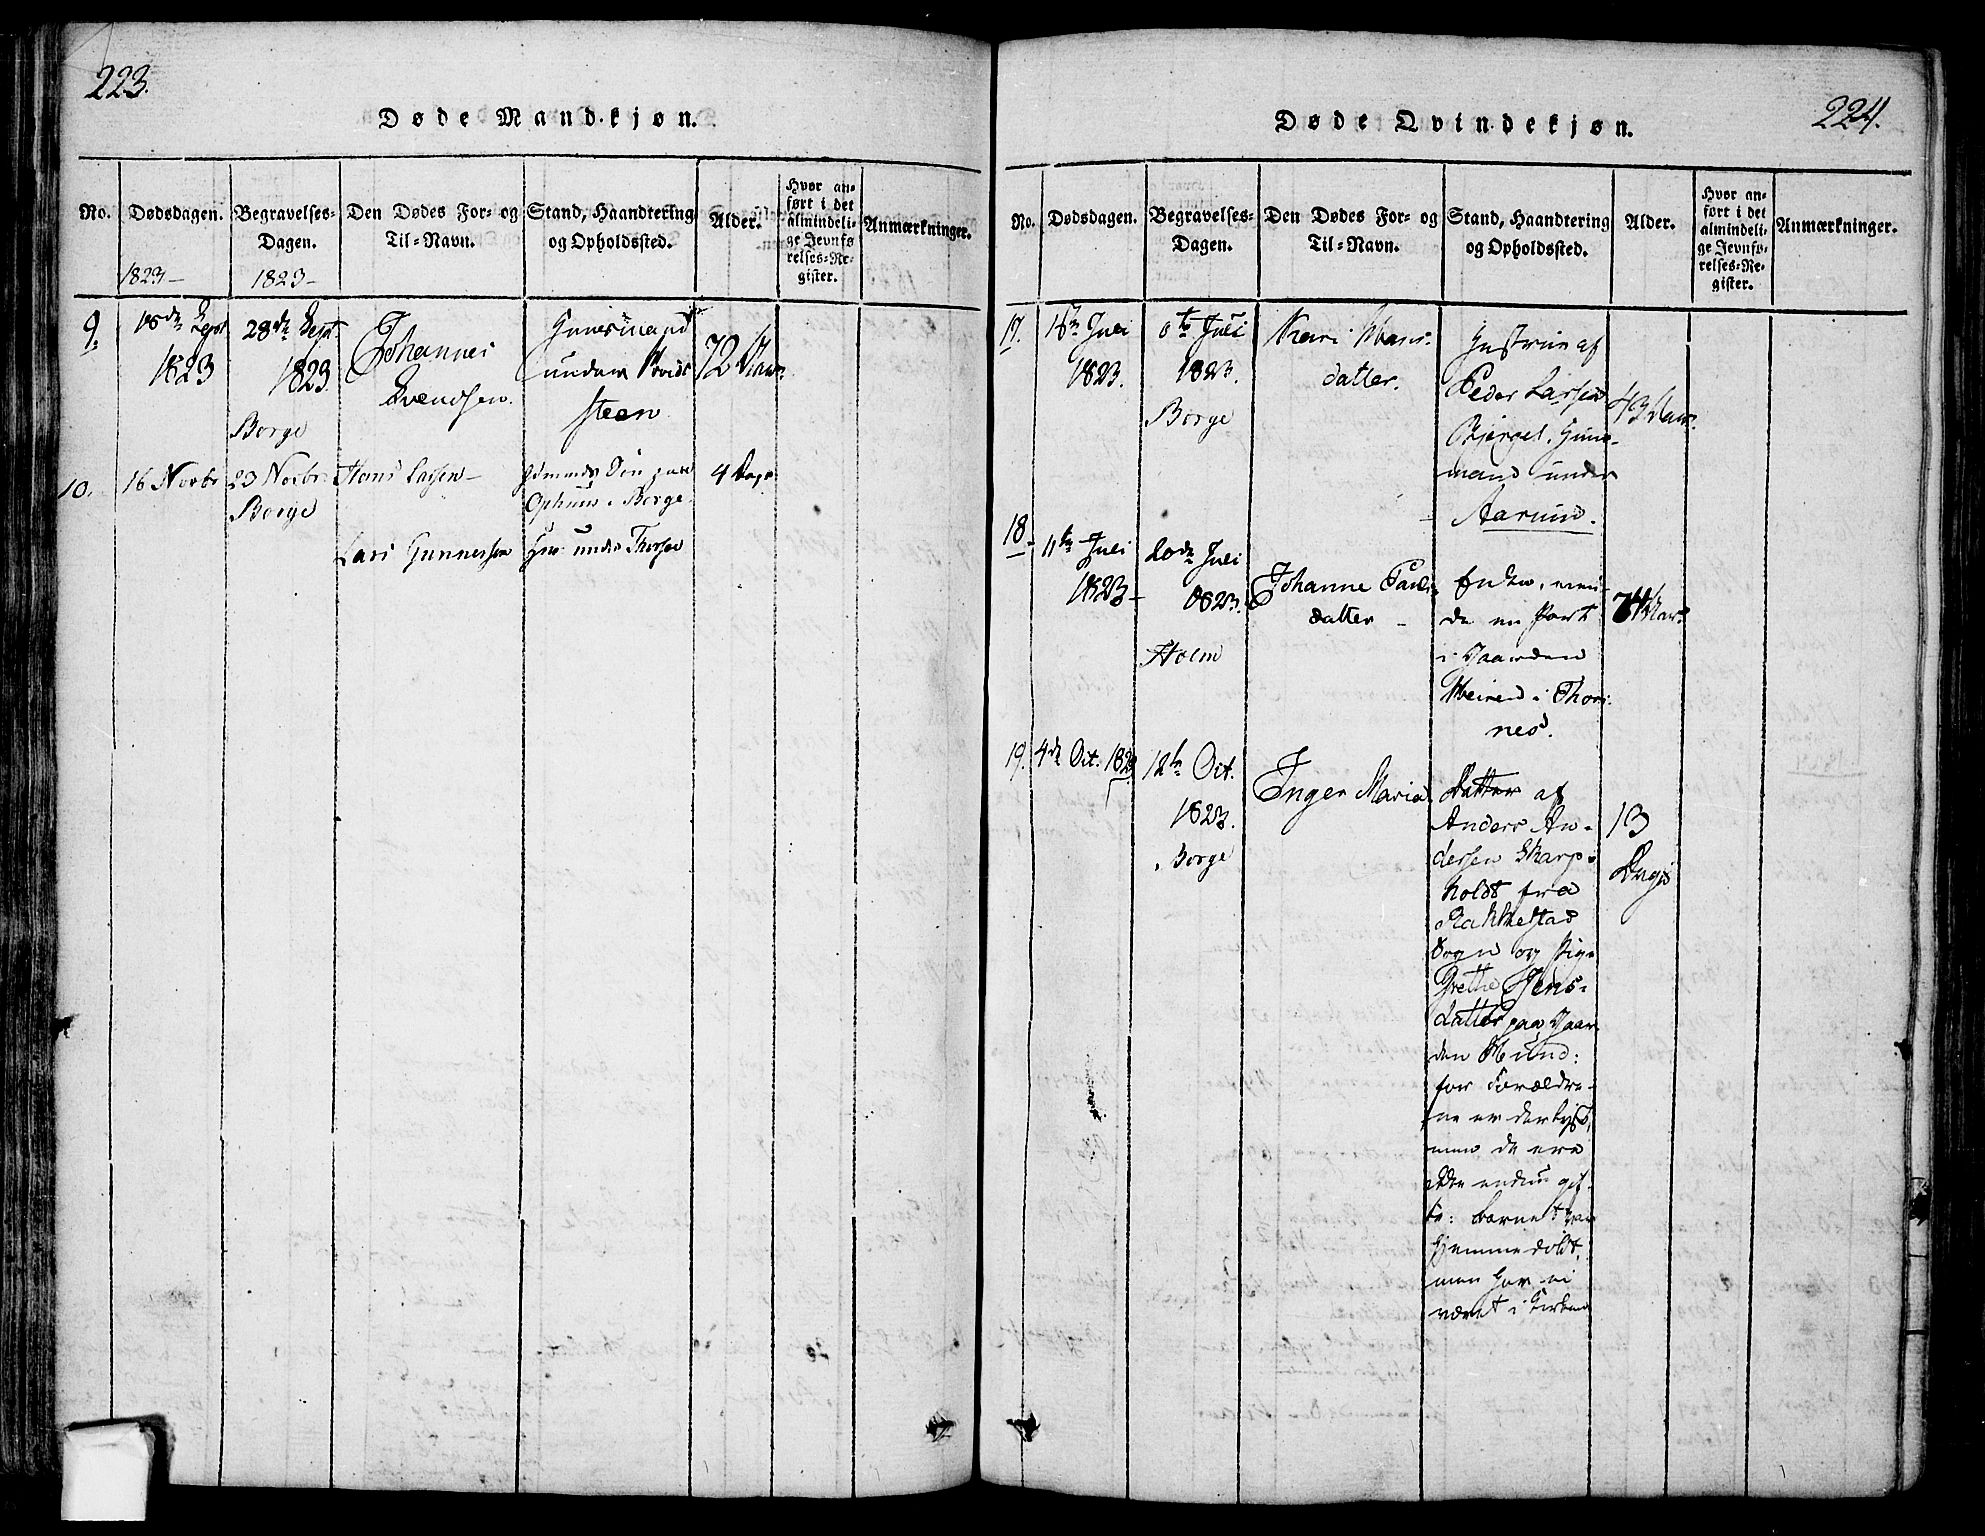 223.
Døde Mandkjøn.
No.
Dødsdagen.
1823 -
Begravelses-
Dagen.
1823 -
Den Dødes For- og
Til-Navn.
Stand, Haandtering
og Opholdssted.
Alder.
Hvor an-
ført i det
almindeli-
ge Jevnfø
relses-Re-
gister.
Anmærkninger.
9.
18de Sept
1823
28de Sept.
1823
Borge
Johannes
Svendsen.
Huusmand
under
steen
72 Aar
10.
16 Novbr
23 Novbr
Borge
Hans Larsen -
Søn paa
i Borge
4 Dage
Lars Gunnersen
under Thorsøe
224.
Døde Qvindekjøn.
No.
Dødsdagen.
Begravelses-
Dagen.
Den Dødes For- og
Til-Navn.
Stand, Haandtering
og Opholdssted.
Alder.
Hvor an-
ført i det
almindeli-
ge Jevnfø-
relses-Re-
gister.
Anmærkninger.
17.
Juli
1823.
Juli
1823.
Borge
Kari Hans-
datter.
Hustrue af
Peder Larsen
Huus-
mand under
Aarum.
43 Aar.
18.
11te Juli
1823 -
20de Juli
1823.
Holm
Johanne Pauls-
datter -
Enke,
de en Part
i Gaarden
i Thors-
nes.
74 Aar.
19.
4de Oct. 1823
12te Oct.
1823.
Borge
Inger Maria
Datter af
Anders An-
dersen Skarp-
holdt fra
Rakkestad
Sogn og Pige
Grethe Jens-
datter paa Gaar
den Hund:
for Forældre-
ne er der lyst,
men de ere
ikke endnu gif-
te: barnet var
hjemmedøbt,
men har ei
været i Kirken
13
Dage